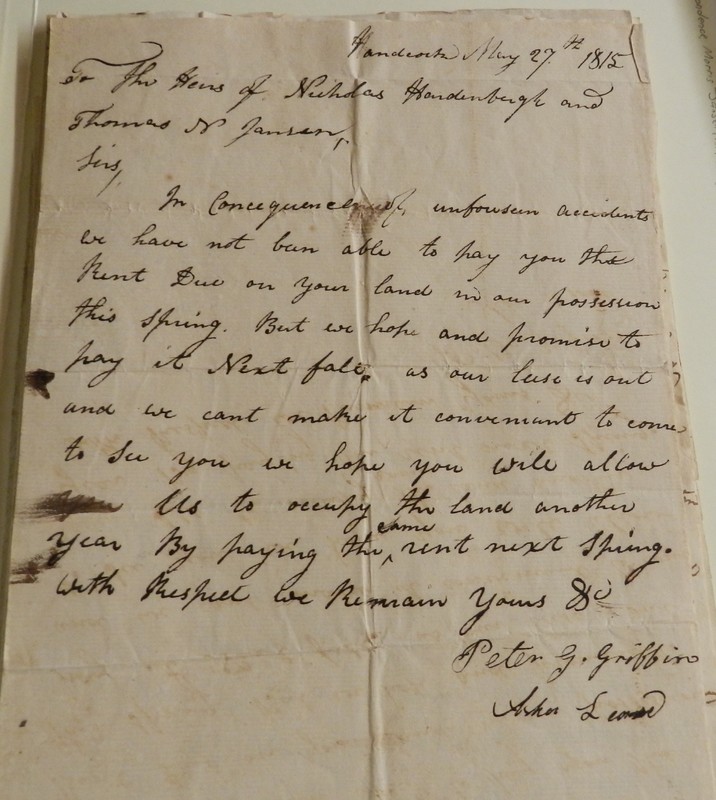 Handcock May 27th 1815
To The Heirs of Nicholas Hardenbergh and
Thomas N Jansen,
Sirs,
In Concequence of unfouseen accidents
we have not ben able to pay you the
Rent Due on your land in our possession
this Spring. But we hope and promise to
pay it Next fall, as our lese is out
and we cant make it conveniant to come
to See you we hope you will allow
Us to occupy the land another
year By paying the same rent next Spring.
With Respect we Remain Yours &c
Peter G. Griffin